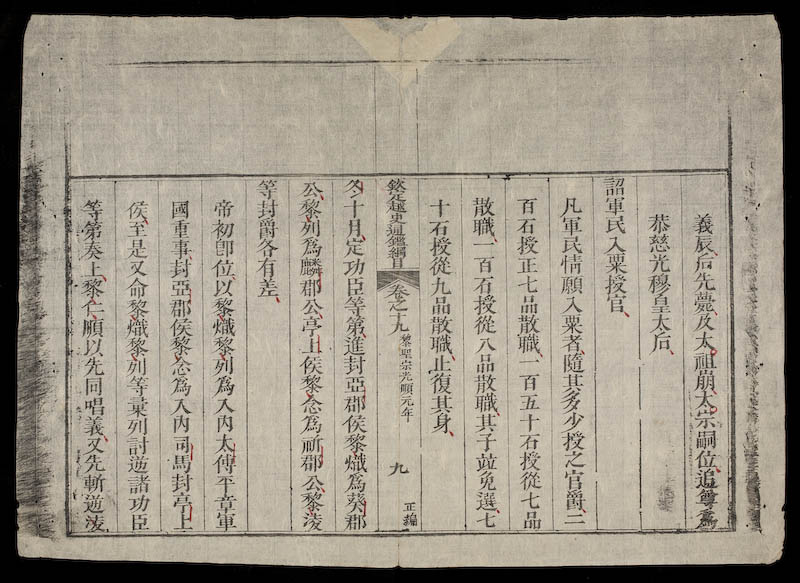 義辰后先薨及太祖崩太宗嗣位追尊爲
恭慈光穆皇太后
詔軍民入粟授官
凡軍民情願入粟者隨其多少授之官爵三
百石授正七品散職一百五十石授從七品
散職一百石授從八品散職其子並免選七
十石授從九品散職止復其身
欽定越史通鑑綱目 卷之十九 黎聖宗光順元年 九 正編
冬十月定功臣等第進封亞郡侯黎熾爲葵郡
公黎列爲麟郡公亭上侯黎念爲祈郡公黎淩
等封爵各有差
帝初卽位以黎熾黎列爲入內太傅平章軍
國重事封亞郡侯黎念爲入內司馬封亭上
侯至是又命黎熾黎列等彙列討逆諸功臣
等第奏上黎仁順以先同唱義又先斬逆淩